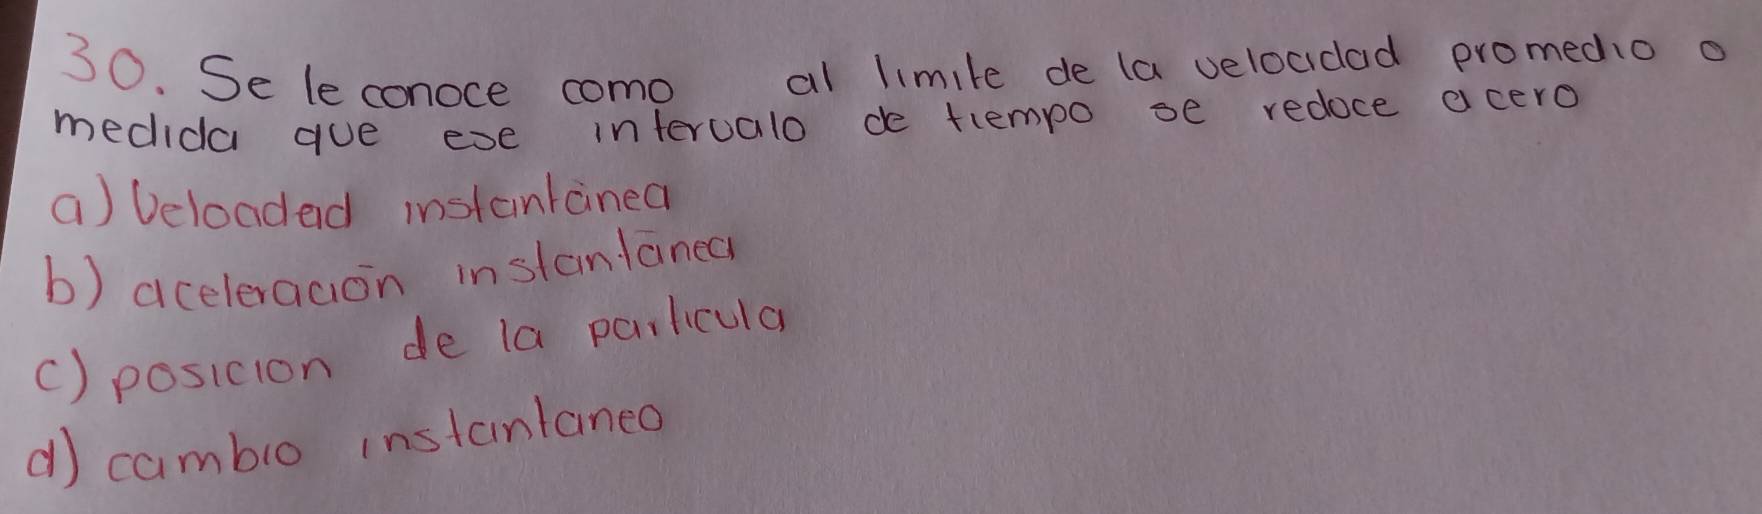 30. Se le conoce como al limite de la velocidad promedio o
medida que ese intervalo de tiempo se reduce a cero
a) Velocidad instantánea
b) aceleración instantánea
c) posicion de la particula
d) cambio instantaneo